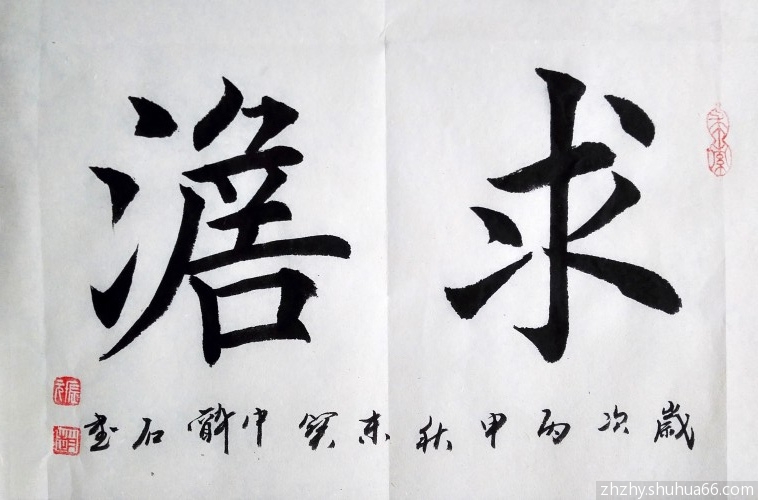 求澹
歲次丙申秋末中醉石書
zhzhy.shuhua66.com